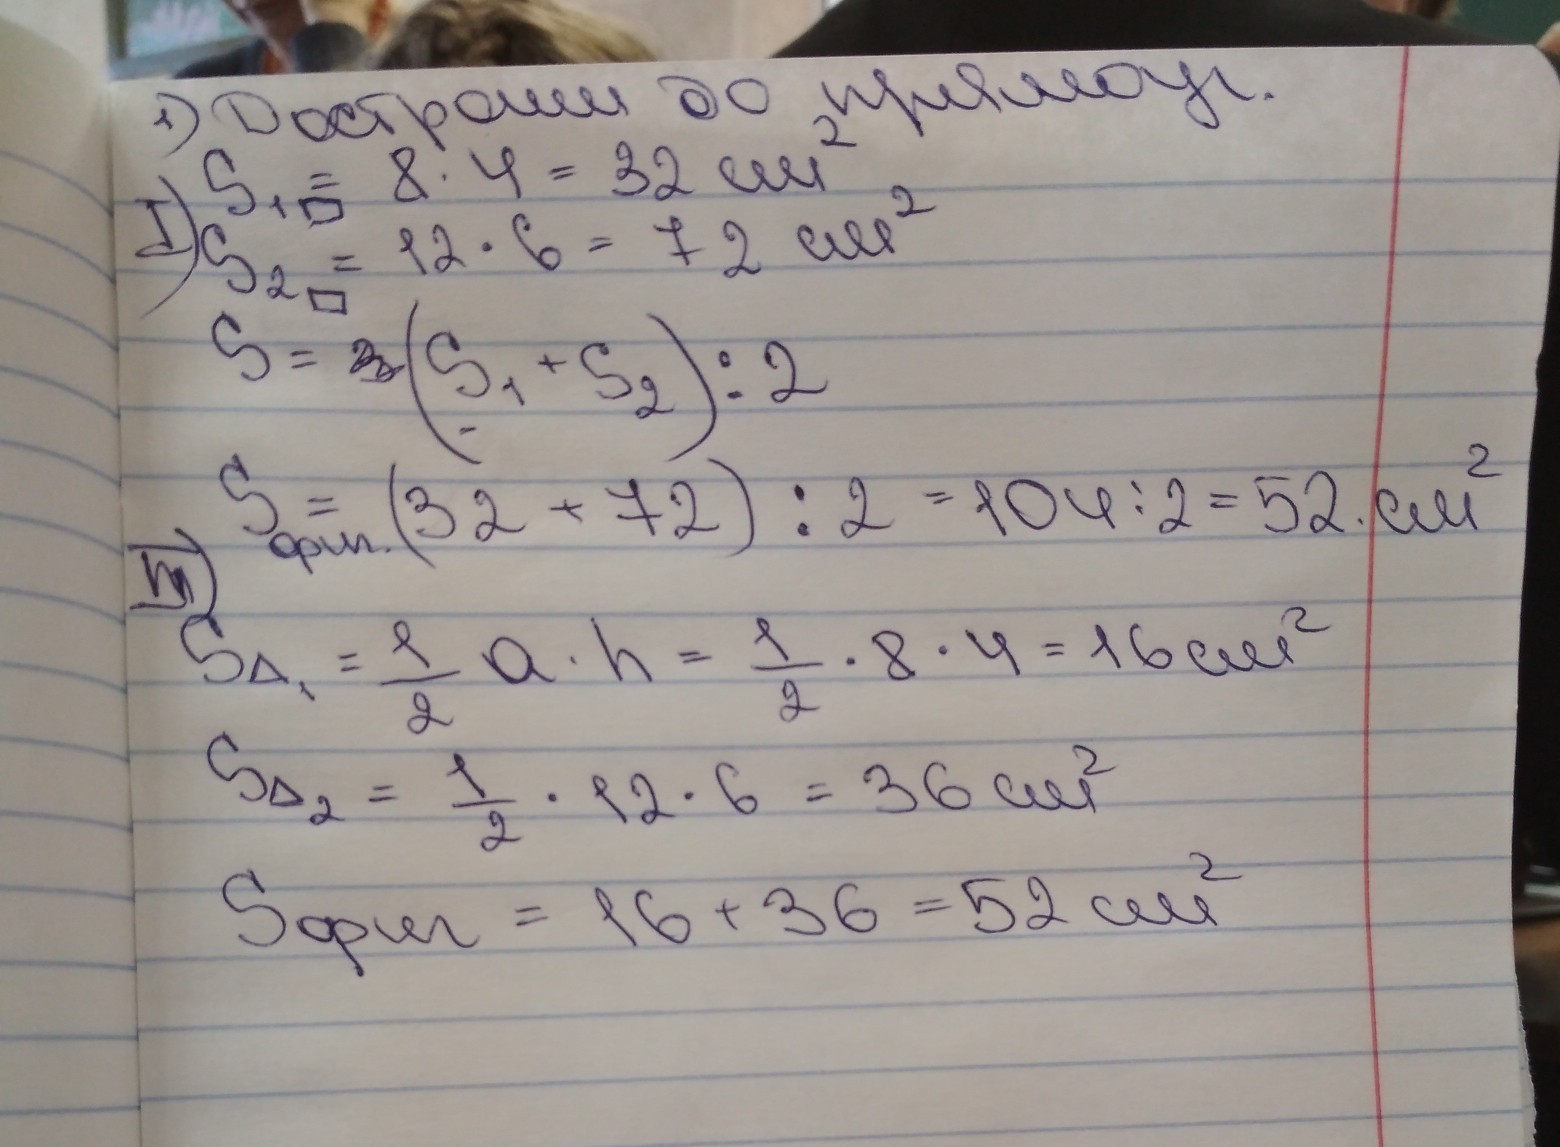 1) Достроим до прямоуг.
S₁▭ = 8 · 4 = 32 см²
I) S₂▭ = 12 · 6 = 72 см²
S = (S₁ + S₂) : 2
Sфиг. = (32 + 72) : 2 = 104 : 2 = 52 см²
II)
S△₁ = 1/2 a · h = 1/2 · 8 · 4 = 16 см²
S△₂ = 1/2 · 12 · 6 = 36 см²
Sфиг = 16 + 36 = 52 см²